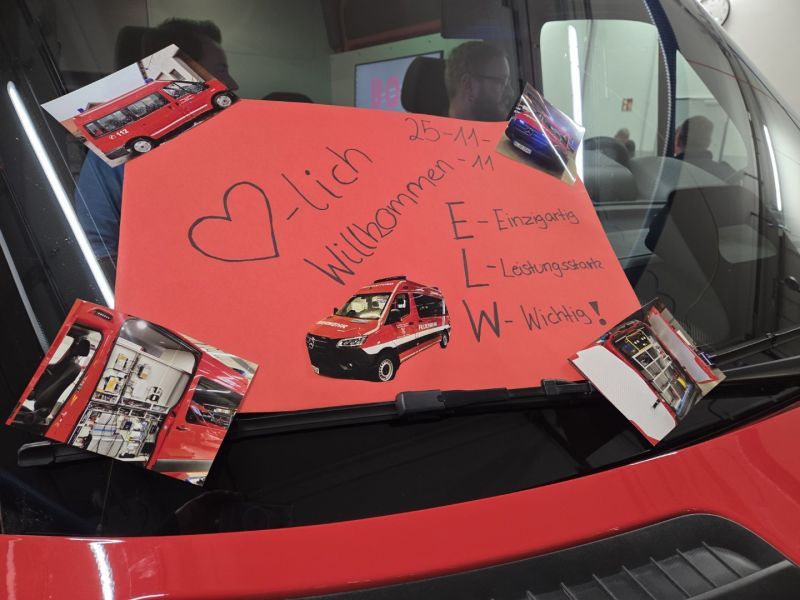 25-11-
-11
♡-lich
Willkommen
E - Einzigartig
L - Leistungsstark
W - Wichtig!
112
FEUERWEHR